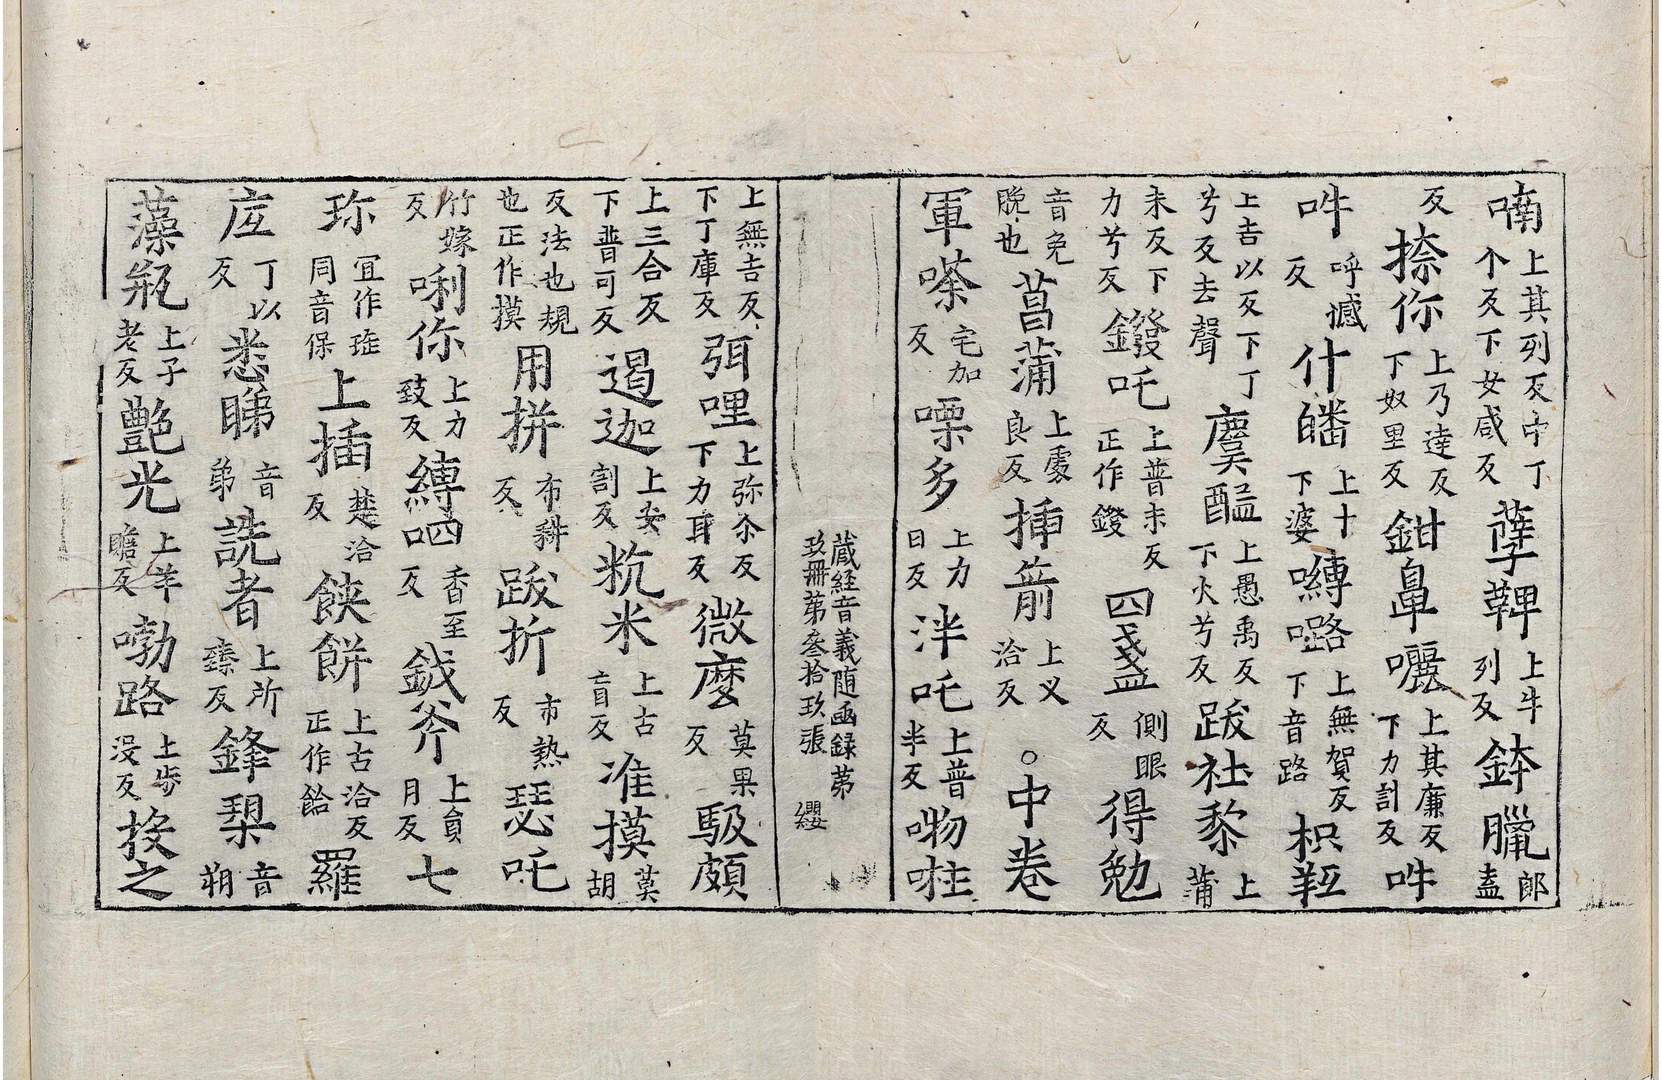 喃上其列反中丁个反下女咸反孽鞞上牛列反鉢臘郎盍
反捺你上乃達反下奴里反鉗鼻囇上其廉反下力計反吽
吽呼撼反什皤上十下婆嚩路上無賀反下音路枳䩭
上吉以反下丁兮反去聲麌醯上愚禹反下火兮反跋社黎上蒲
末反下力兮反鏺吒上普末反正作鏺四盞側眼反得勉
音免晚也菖蒲上處良反揷箭上乂洽反○中卷
軍嗏宅加反㗚多上力日反泮吒上普半反㗘㗏
藏経音義随函録第玖冊第叁拾玖張 纓
上無吉反下丁庫反弭哩上弥尒反下力耳反微麼莫果反馺頗
上三合反下普可反遏迦上安割反秔米上古盲反准摸莫胡
反法也規也正作摸用拼布耕反跋折市熱反瑟吒
竹嫁反唎你上力致反縛呬香至反鉞斧上負月反七
珎冝作㻏同音保上插楚洽反餄餅上古洽反正作餄羅
庢丁以反悉睇音弟詵者上所臻反鋒槊音朔
藻瓶上子老反艶光上羊贍反嘞路上步没反掞之